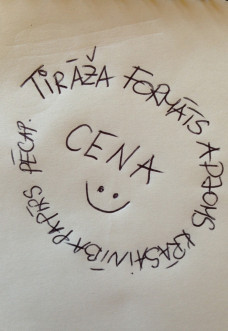 TIRĀŽA FORMĀTS APJOMS KRĀSAINĪBA PAPĪRS PĒCAP.
CENA